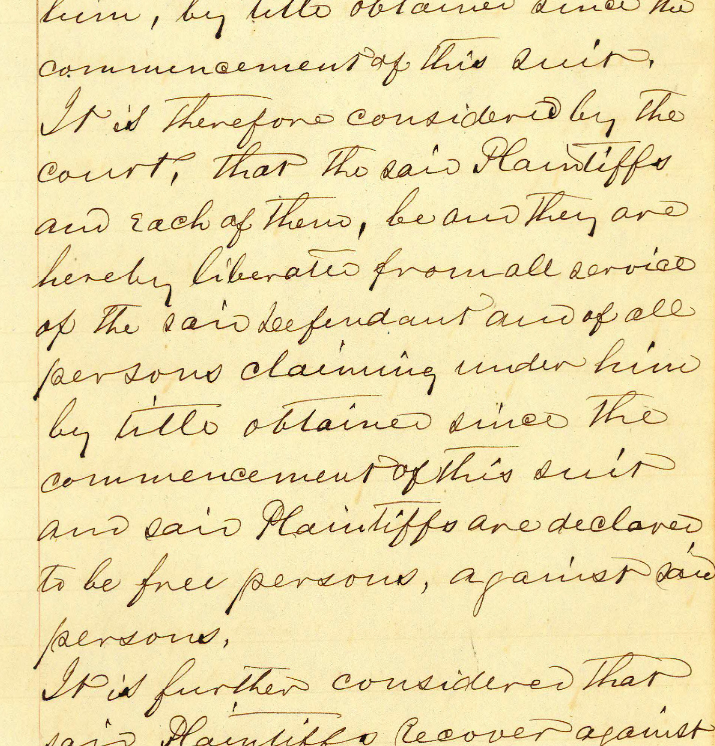 him, by title obtained since the
commencement of this suit.
It is therefore considered by the
court, that the said Plaintiffs
and Each of them, be and they are
hereby liberated from all service
of the said defendant and of all
persons claiming under him
by title obtained since the
commencement of this suit
and said Plaintiffs are declared
to be free persons, against said
persons.
It is further considered that
said Plaintiffs Recover against